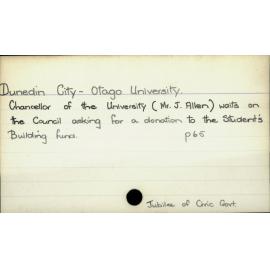 Dunedin City - Otago University.
Chancellor of the University (Mr. J. Allen) waits on
the Council asking for a donation to the Student's
Building fund. p65
Jubilee of Civic Govt.